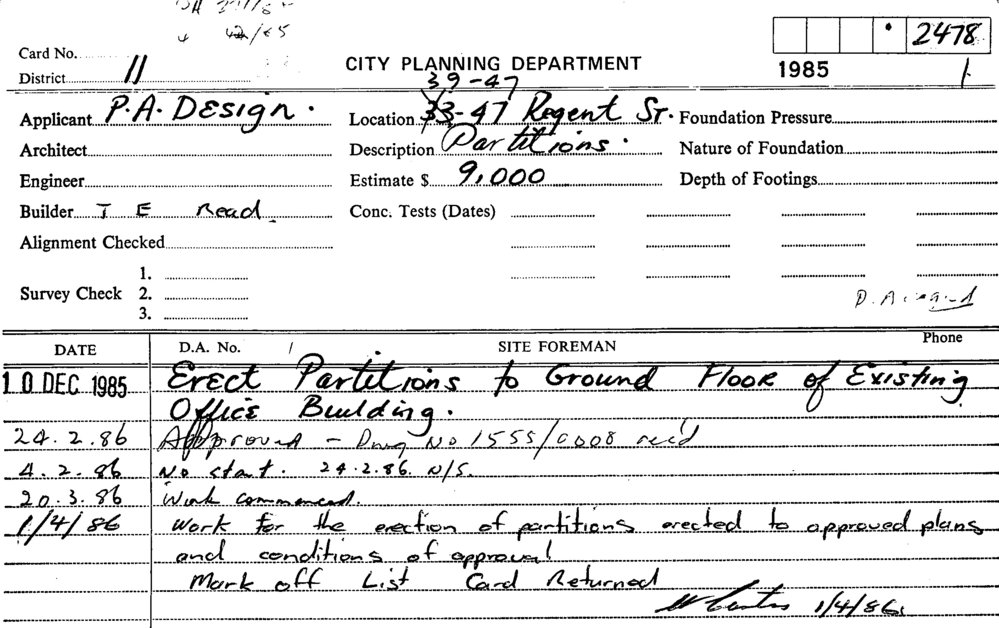 2478
Card No.
District 11
CITY PLANNING DEPARTMENT
1985
39-47
Applicant P.A. Design.
Location 33-47 Regent St.
Foundation Pressure
Architect
Description Partitions.
Nature of Foundation
Engineer
Estimate $ 9,000
Depth of Footings
Builder T E Read
Conc. Tests (Dates)
Alignment Checked
Survey Check 1.
2.
3.
DATE D.A. No. SITE FOREMAN Phone
10 DEC 1985 Erect Partitions to Ground Floor of Existing
Office Building.
24.2.86 Approved - Dwg No 1555/0008 rec'd
4.2.86 No start. 24.2.86. N/S.
20.3.86 Work commenced.
1/4/86 Work for the erection of partitions erected to approved plans
and conditions of approval
Mark off List Card Returned
1/4/86.